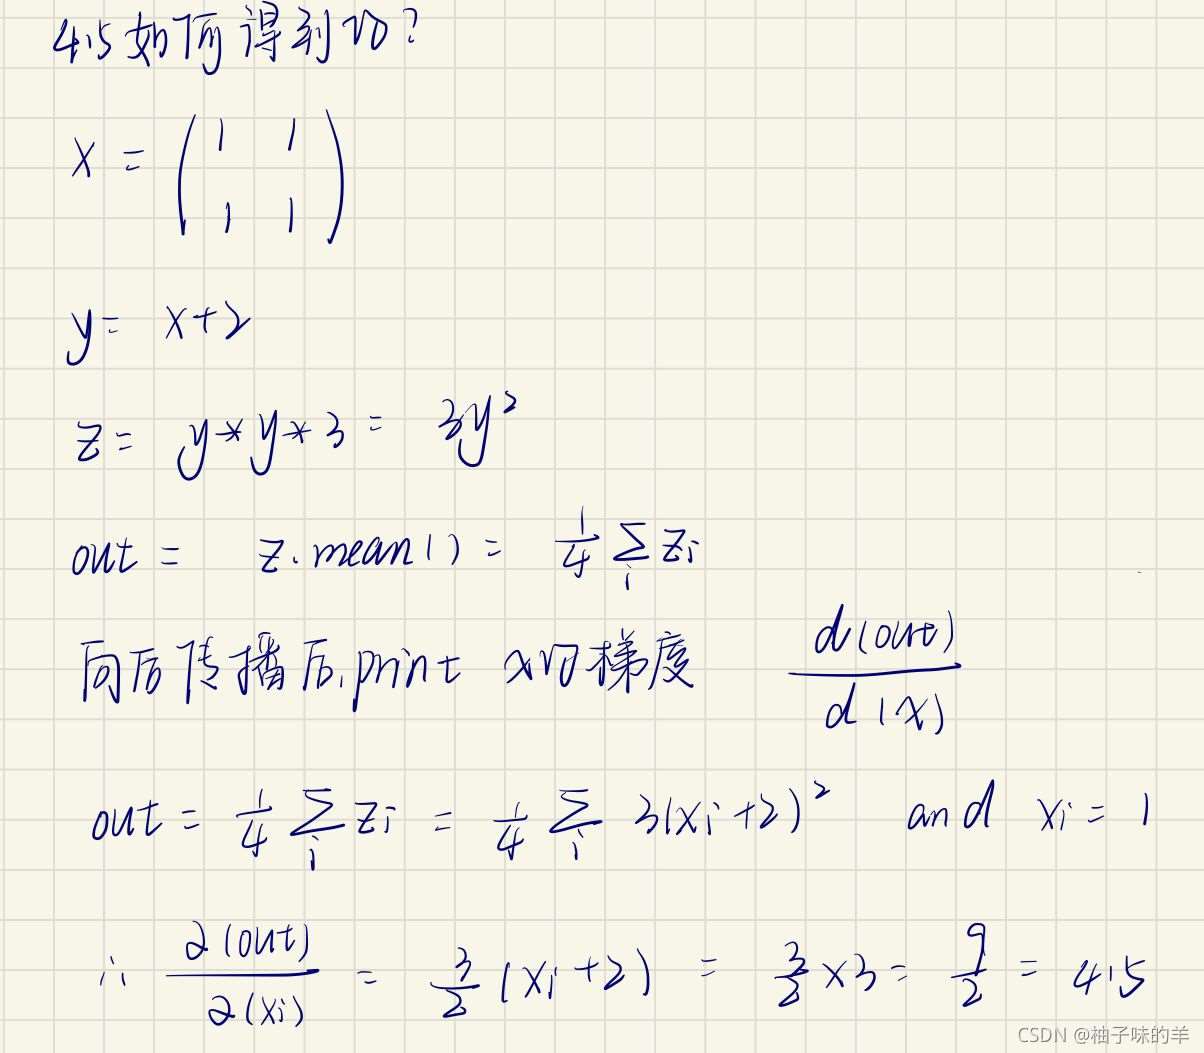 4.5如何得到的?
x = ( 1 1
1 1 )
y = x+2
z = y*y*3 = 3y²
out = z.mean() = 1/4 Σi zi
向后传播后,print x的梯度 d(out)/d(x)
out = 1/4 Σi zi = 1/4 Σi 3(xi+2)² and xi = 1
∴ ∂(out)/∂(xi) = 3/2 (xi+2) = 3/2 ×3 = 9/2 = 4.5
CSDN @柚子味的羊